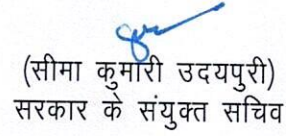 (सीमा कुमारी उदयपुरी)
सरकार के संयुक्त सचिव